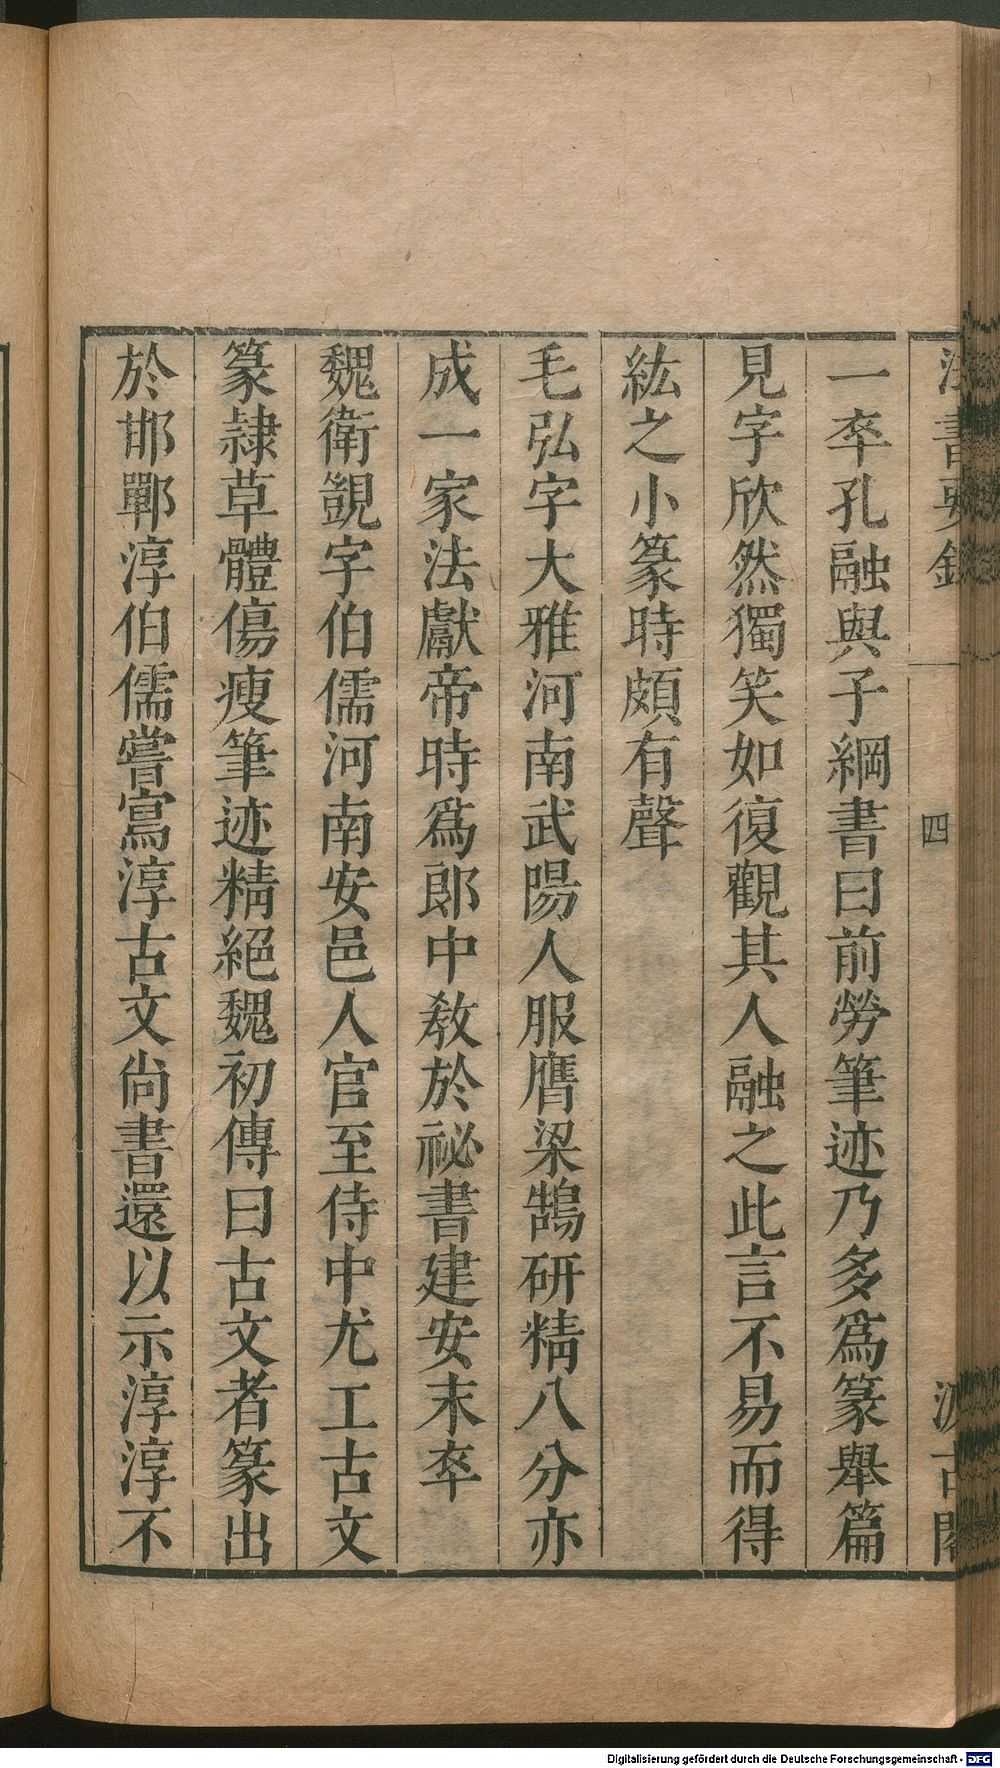 法書要錄
四
汲古閣
一卒孔融與子綱書曰前勞筆迹乃多爲篆舉篇
見字欣然獨笑如復觀其人融之此言不易而得
紘之小篆時頗有聲
毛弘字大雅河南武陽人服膺梁鵠研精八分亦
成一家法獻帝時爲郎中敎於祕書建安末卒
魏衛覬字伯儒河南安邑人官至侍中尤工古文
篆隷草體傷瘦筆迹精絕魏初傳曰古文者篆出
於邯鄲淳伯儒嘗寫淳古文尙書還以示淳淳不
Digitalisierung gefördert durch die Deutsche Forschungsgemeinschaft - DFG